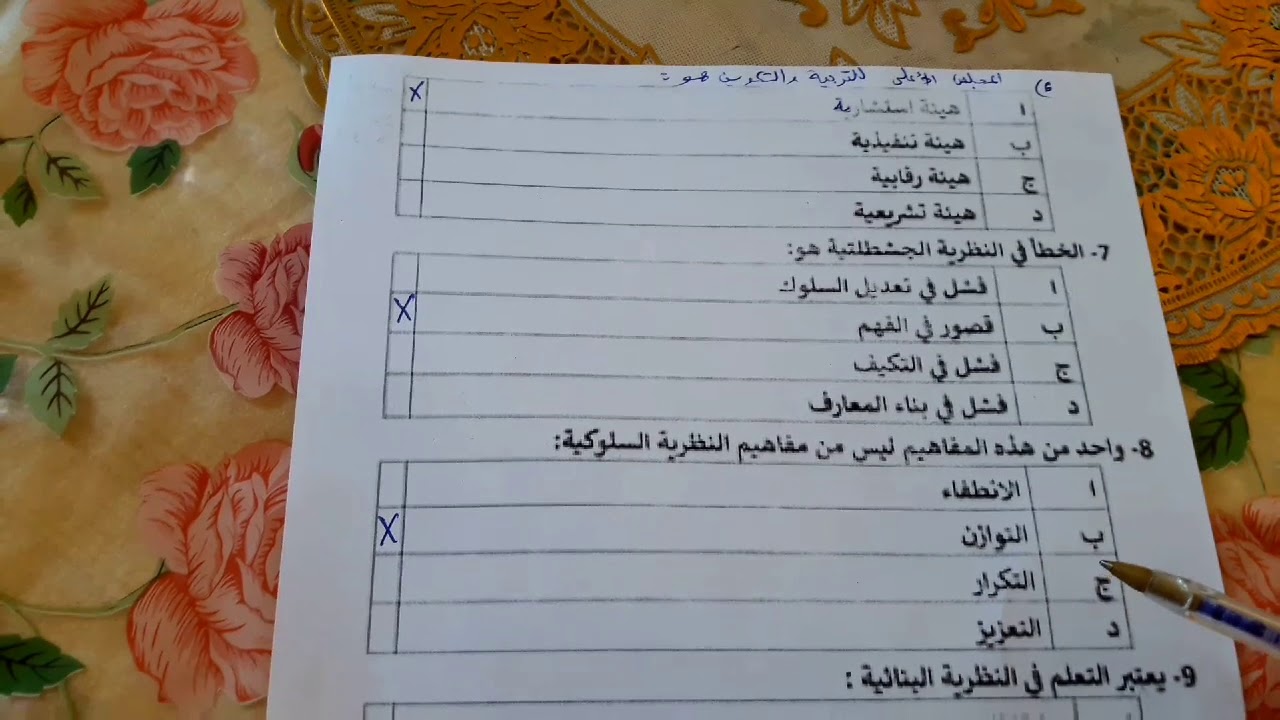 6) المجلس الأعلى للتربية والتكوين هو:
ا هيئة استشارية X
ب هيئة تنفيذية
ج هيئة رقابية
د هيئة تشريعية
7- الخطأ في النظرية الجشطلتية هو:
ا فشل في تعديل السلوك
ب قصور في الفهم X
ج فشل في التكيف
د فشل في بناء المعارف
8- واحد من هذه المفاهيم ليس من مفاهيم النظرية السلوكية:
ا الانطفاء
ب التوازن X
ج التكرار
د التعزيز
9- يعتبر التعلم في النظرية البنائية :